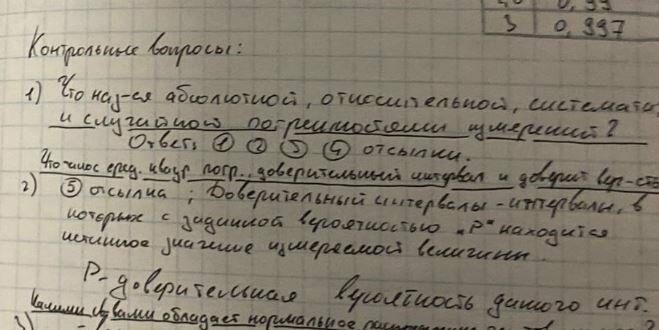 3 0,997
Контрольные вопросы:
1) Что наз-ся абсолютной, относительной, системати
и случайной погрешностями измерений?
Ответ: ① ② ③ ④ отсылки.
Что такое сред. квадр погр., доверительный интервал и доверит вер-сть
2) ⑤ отсылка; Доверительный интервалы - интервалы, в
которых с заданной вероятностью „P" находится
истинное значение измеряемой величины.
P - доверительная вероятность данного инт.
Какими св-вами обладает нормальное